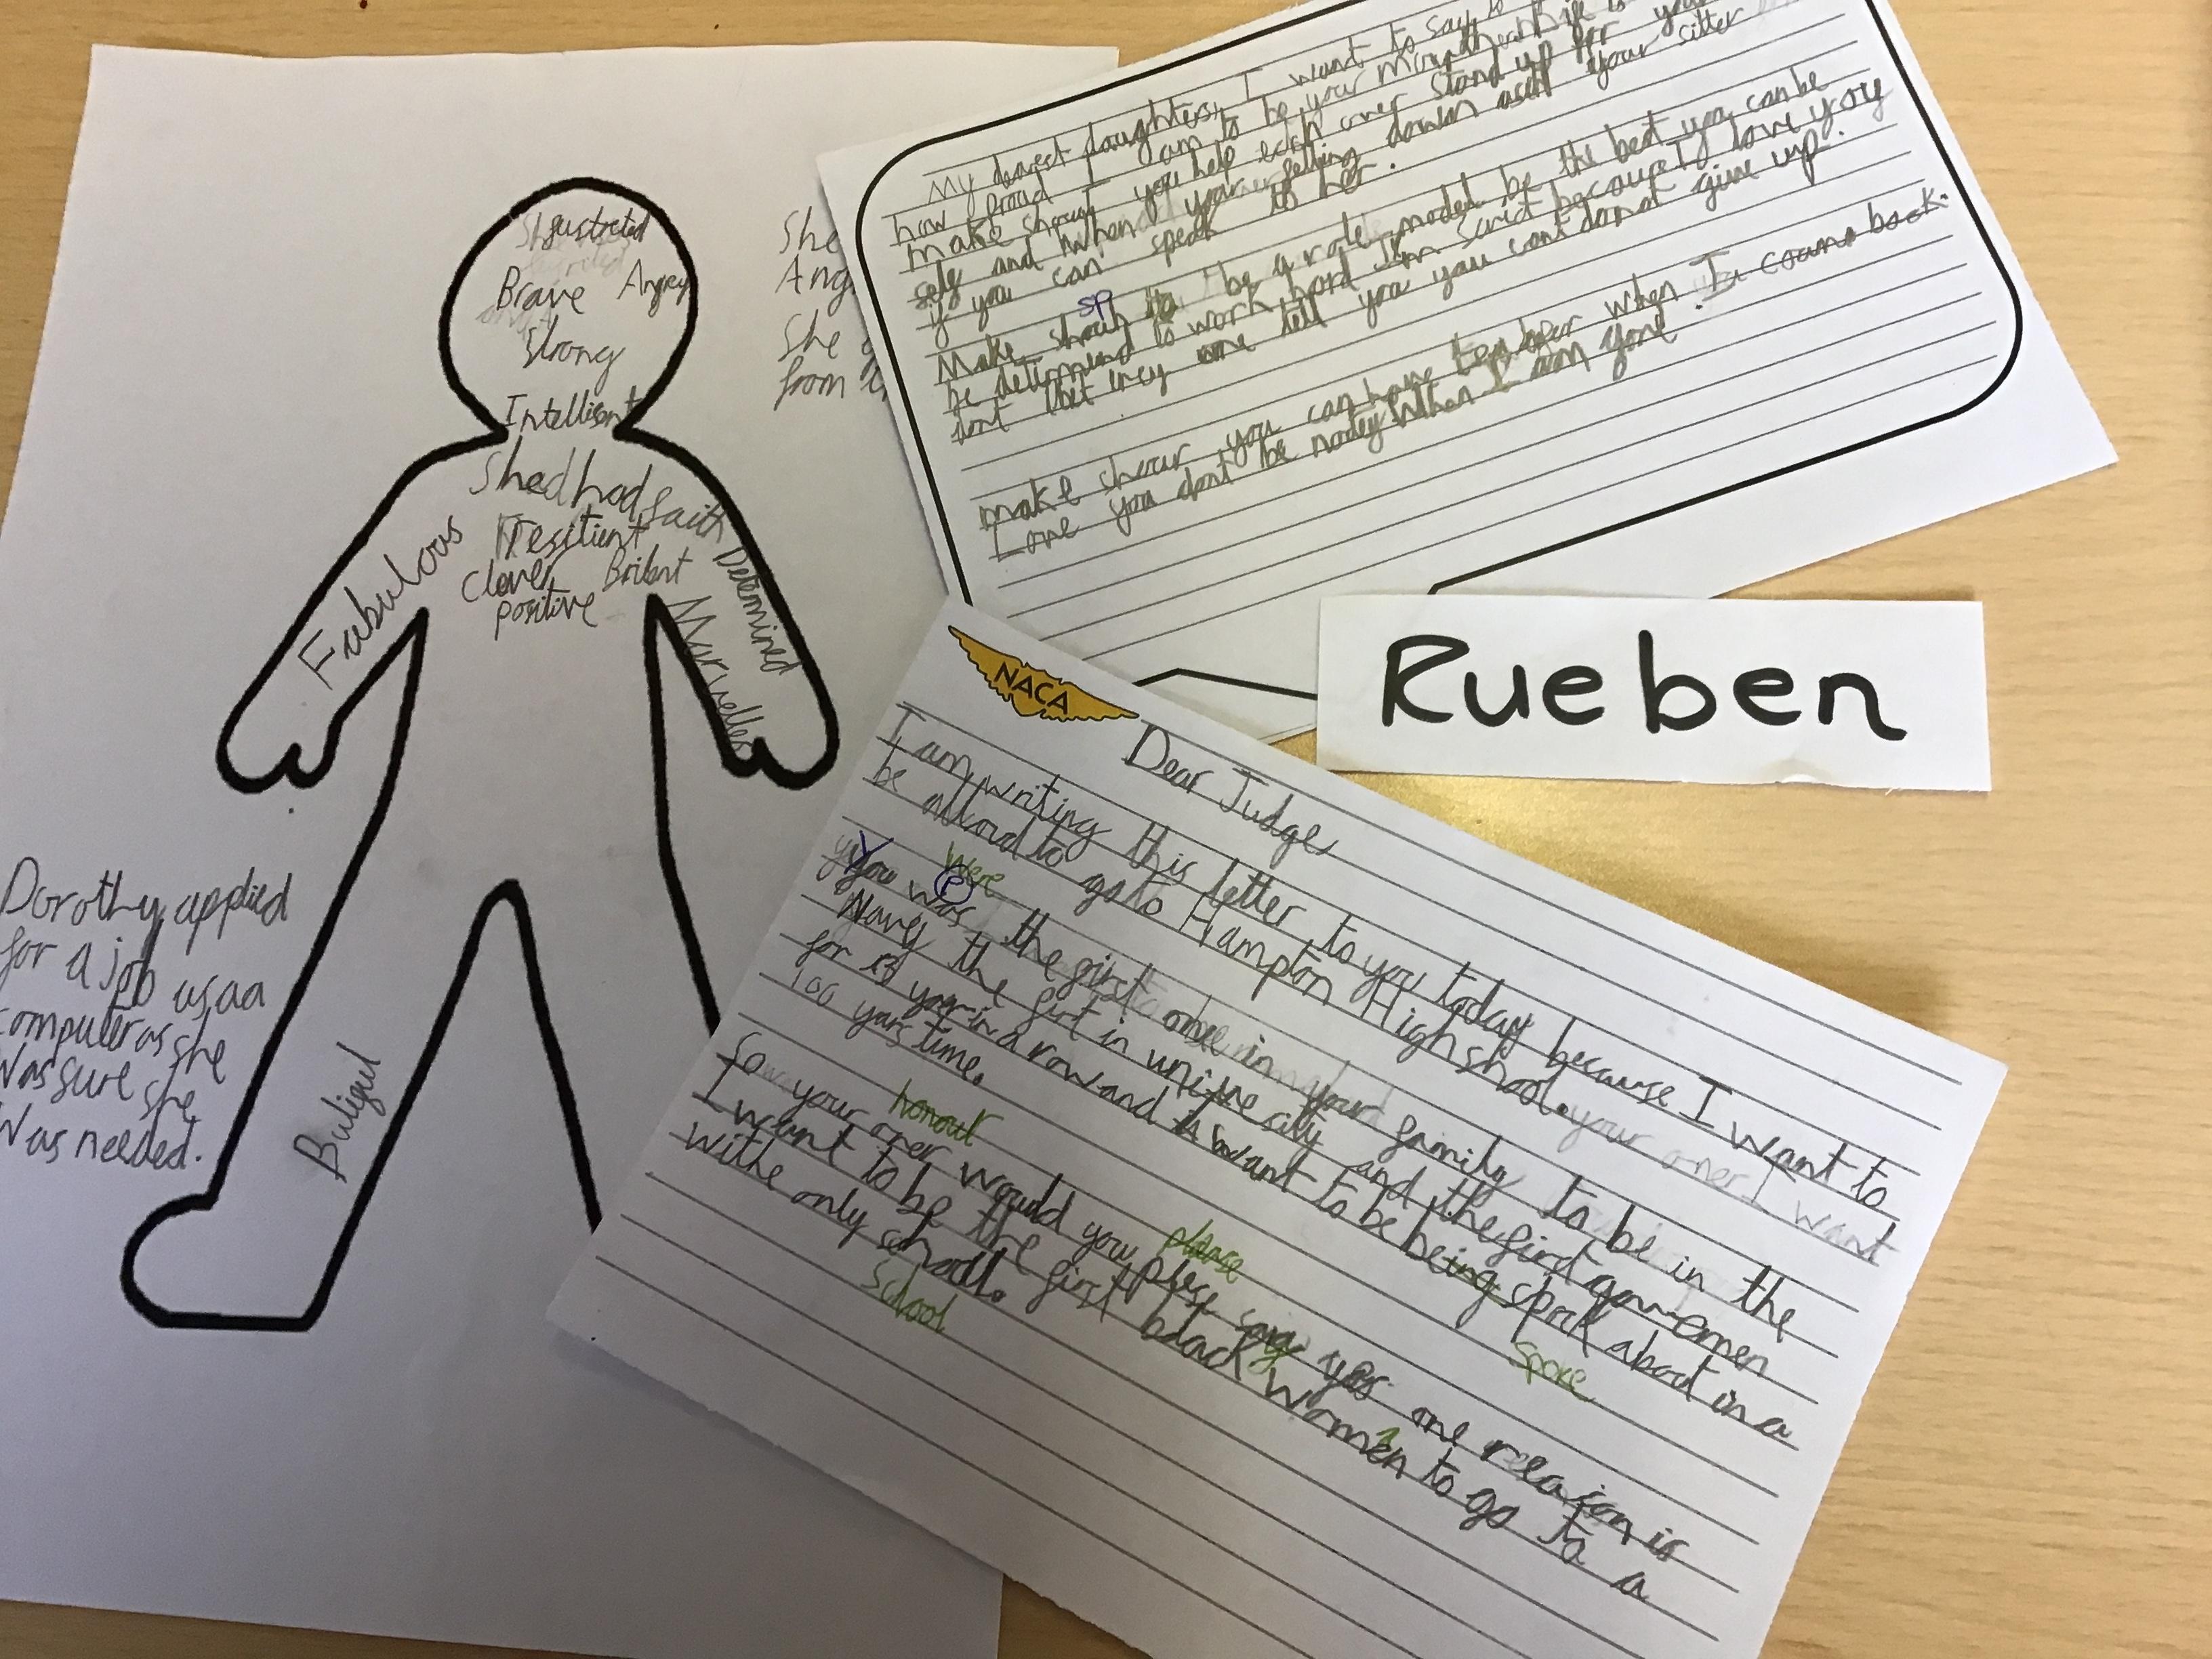 frustrated
Brave
Angrey
Strong
Intellisent
Shed had faith
resilient
Clever
Brilent
positive
Fabulous
Determined
Marvelles
Butiful
She
Ang
She
from
Dorothy applied
for a job as aa
computer as she
was sure she
was needed.
My dearest daughters, I want to say
how proud I am to be your
make shour you help each over stand up for your
self and when your felling down asck your sitter
if you can speak to her.
sp
Make shour to be a role model be the best you can be
be determend to work hord I'm scrict because I love you
dont let iney one tell you you cant donot give up.
make shour you can have when I coame back.
Love you dont be nortey when I am gone.
Rueben
NACA
Dear Judge,
I am writing this letter to you today because I want to
be alloud to go to Hampton High shool. your oner I want
were
You was the first one in your family to be in the
P
Navey the first in unive city and the first
for in a row and want to be being spock about in a
spoke
100 yars time.
honour
So your oner would you plese say yes one reason is
please
I want to be the first black women to go to a
a
withe only school.
School